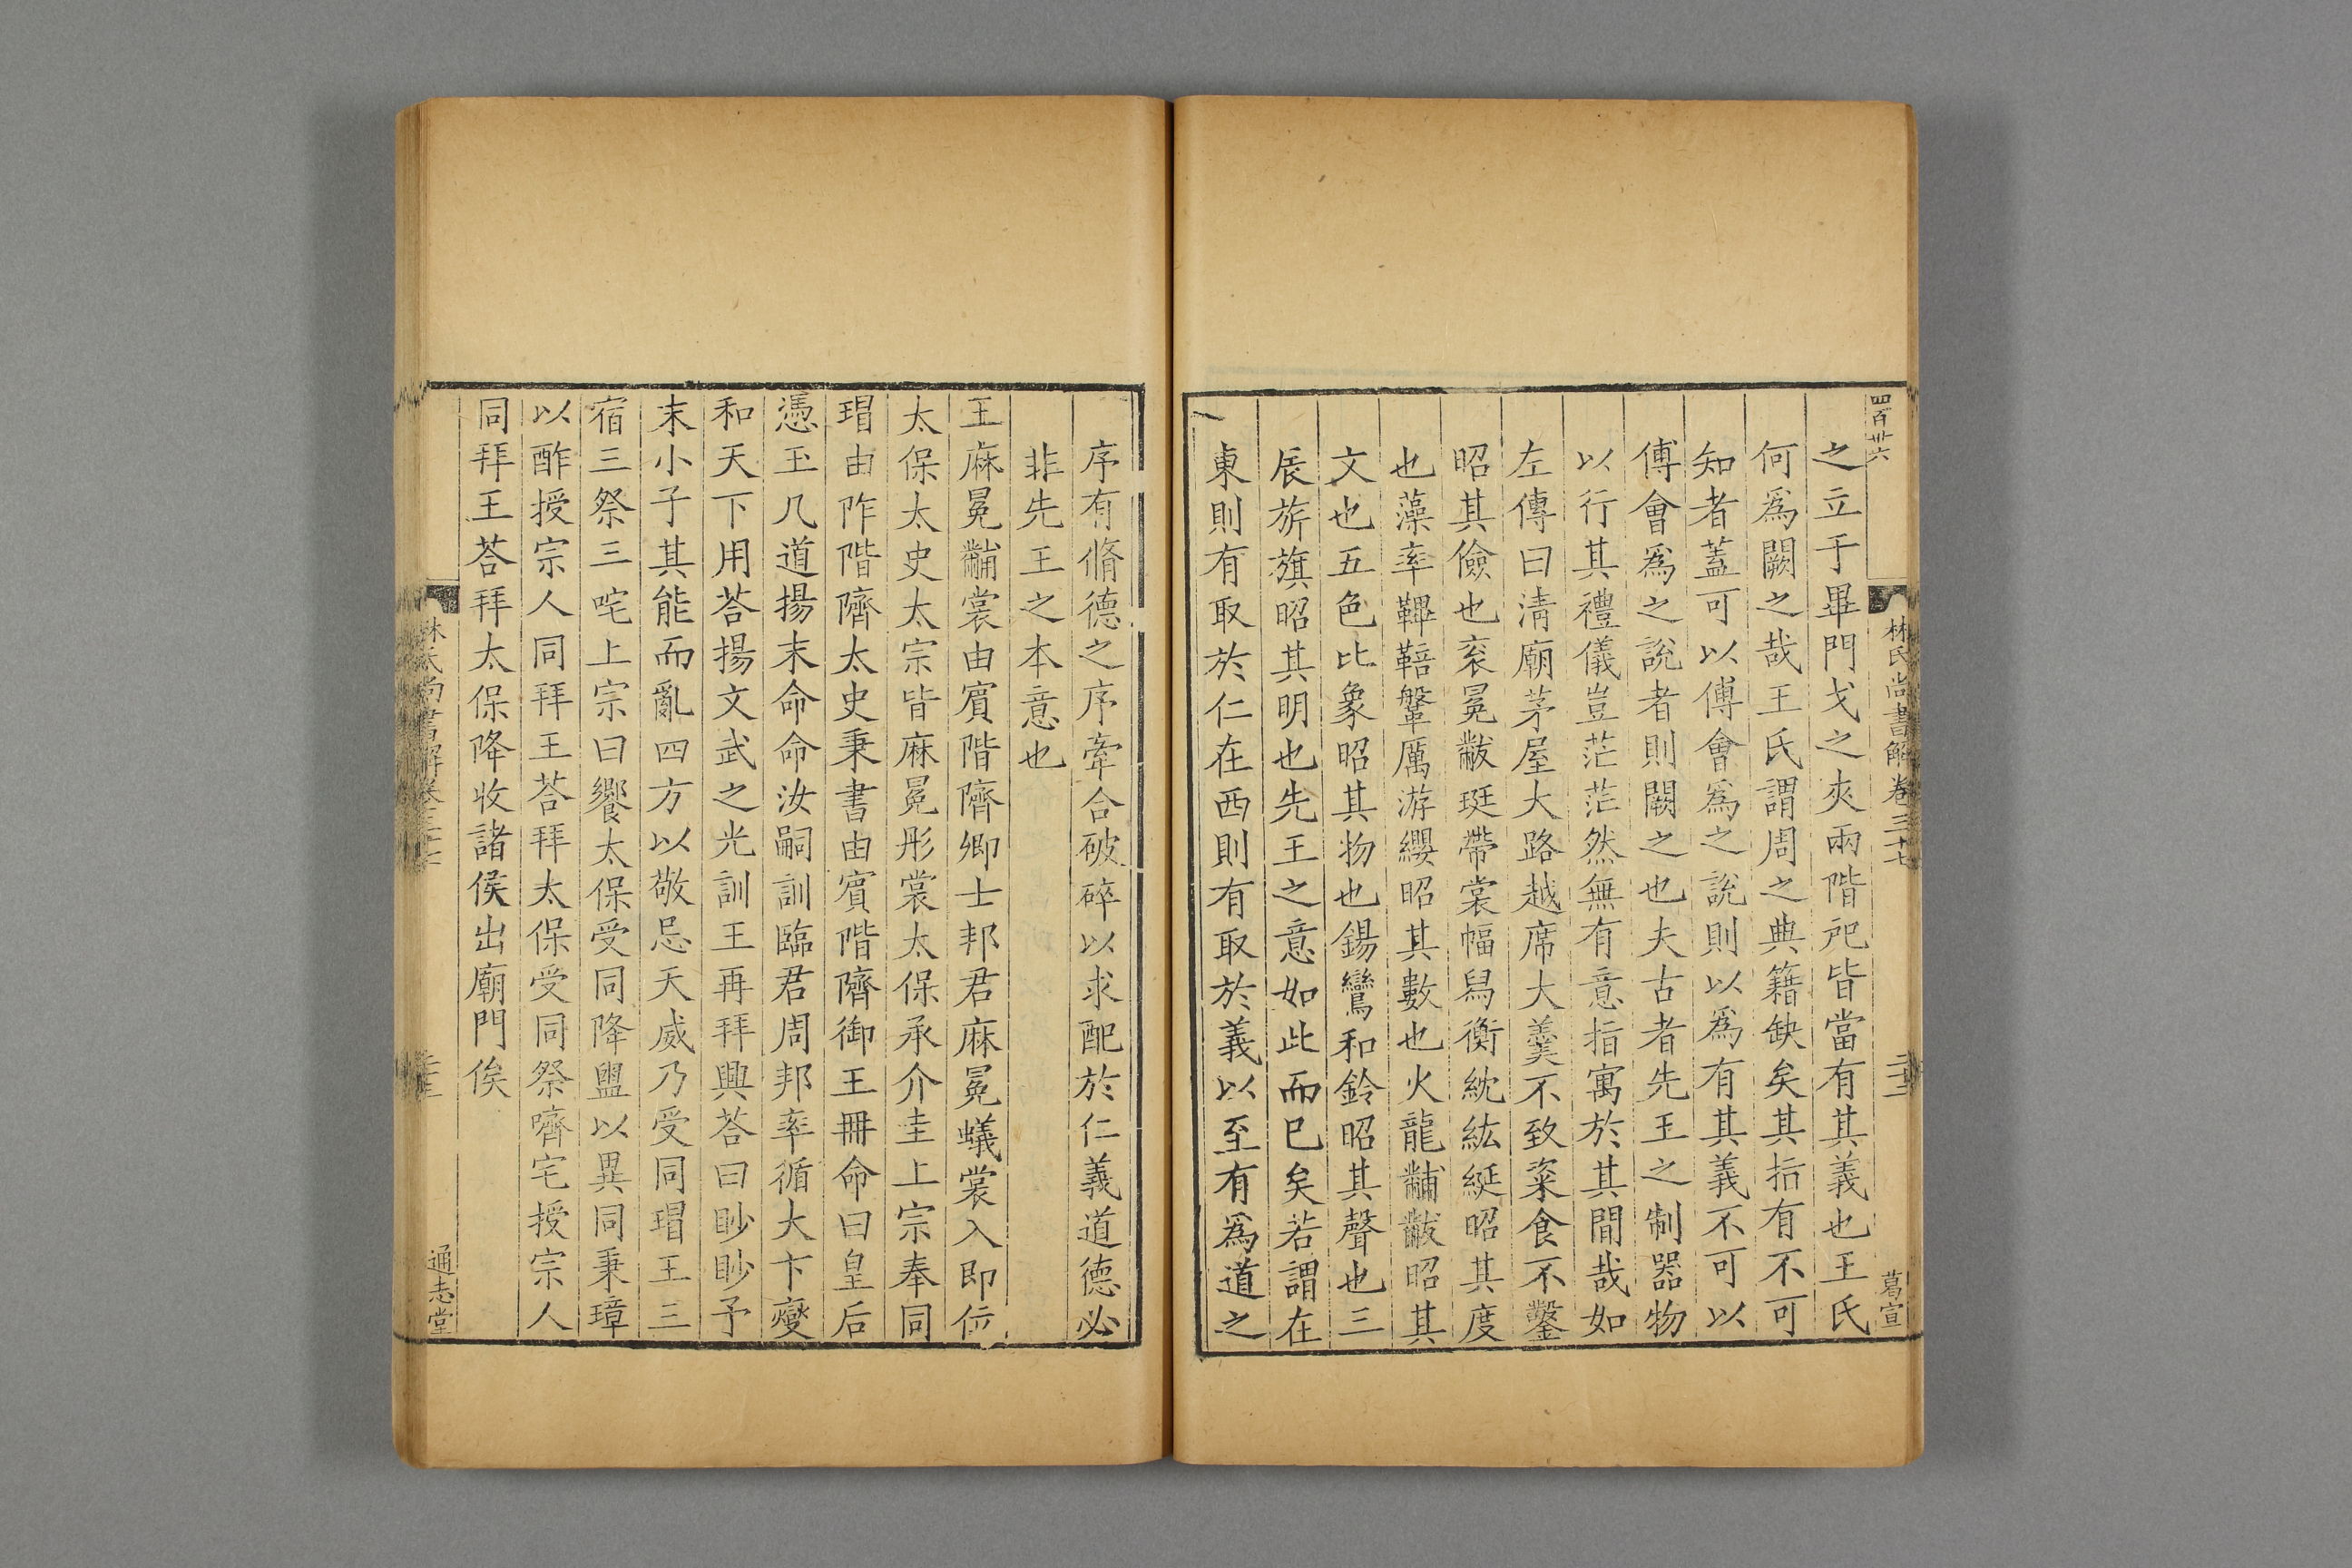 四百卅六
林氏尚書解卷三十七
二十二
葛宣
之立于畢門戈之夾兩階戺皆當有其義也王氏
何爲闕之哉王氏謂周之典籍缺矣其指有不可
知者蓋可以傅會爲之說則以爲有其義不可以
傅會爲之說者則闕之也夫古者先王之制器物
以行其禮儀豈茫茫然無有意指寓於其間哉如
左傳曰淸廟茅屋大路越席大羹不致粢食不鑿
昭其儉也袞冕黻珽帶裳幅舄衡紞紘綖昭其度
也藻率鞞鞛鞶厲游纓昭其數也火龍黼黻昭其
文也五色比象昭其物也鍚鸞和鈴昭其聲也三
辰旂旗昭其明也先王之意如此而已矣若謂在
東則有取於仁在西則有取於義以至有爲道之
序有脩德之序牽合破碎以求配於仁義道德必
非先王之本意也
王麻冕黼裳由賓階隮卿士邦君麻冕蟻裳入即位
太保太史太宗皆麻冕彤裳太保承介圭上宗奉同
瑁由阼階隮太史秉書由賓階隮御王冊命曰皇后
憑玉几道揚末命命汝嗣訓臨君周邦率循大卞燮
和天下用荅揚文武之光訓王再拜興荅曰眇眇予
末小子其能而亂四方以敬忌天威乃受同瑁王三
宿三祭三咤上宗曰饗太保受同降盥以異同秉璋
以酢授宗人同拜王荅拜太保受同祭嚌宅授宗人
同拜王荅拜太保降收諸侯出廟門俟
林氏尚書解卷三十七
通志堂